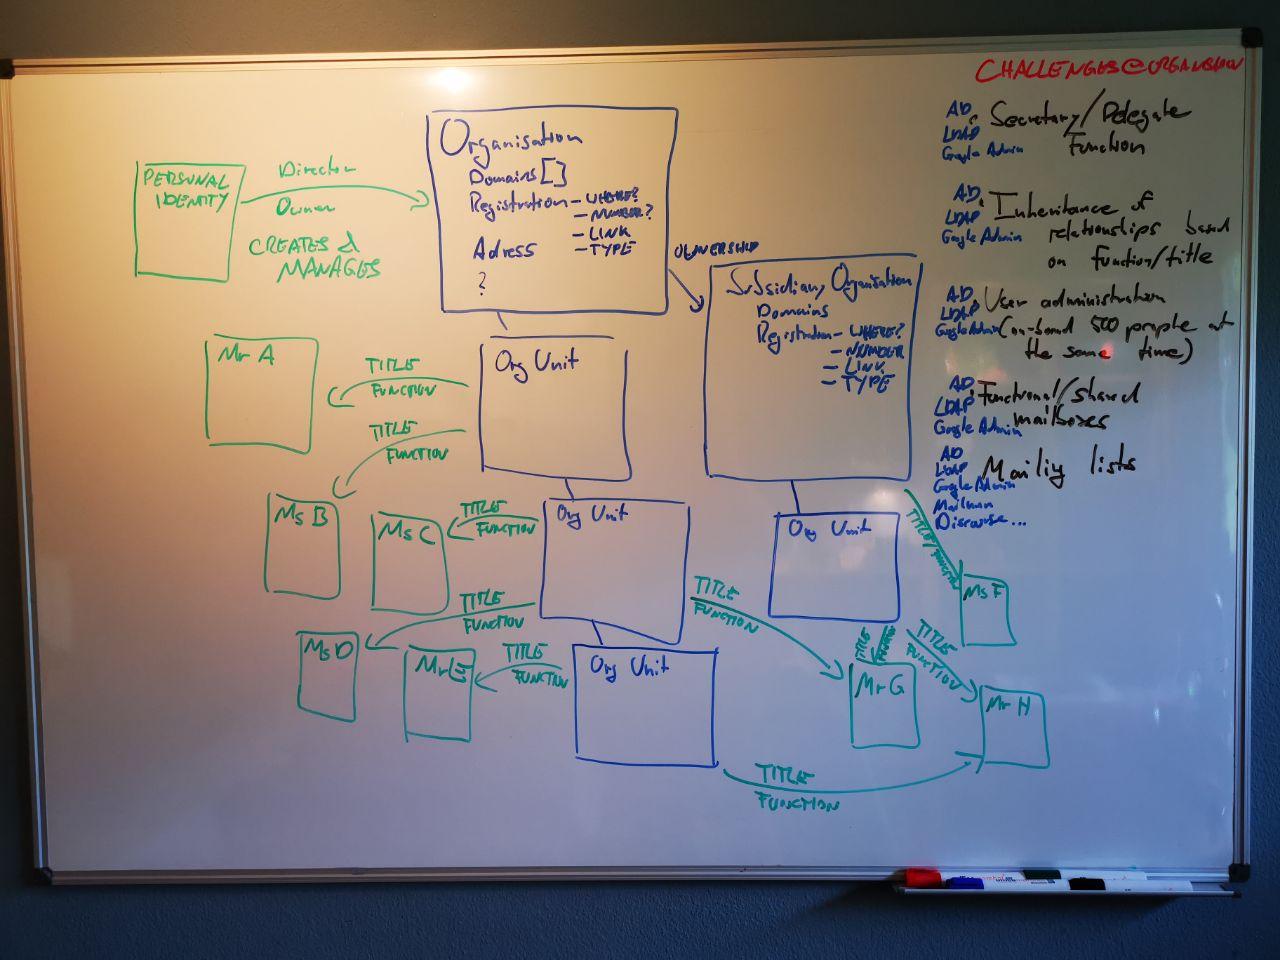 CHALLENGES@ORGANISATION
PERSONAL
IDENTITY
Director
Owner
CREATES &
MANAGES
Organisation
Domains []
Registration - WHERE?
- NUMBER?
- LINK
- TYPE
Adress
?
OWNERSHIP
Subsidiary Organisation
Domains
Registration - WHERE?
- NUMBER
- LINK
- TYPE
Mr A
TITLE
FUNCTION
Org Unit
TITLE
FUNCTION
Ms B
Ms C
TITLE
FUNCTION
Org Unit
Org Unit
TITLE/FUNCTION
Ms F
TITLE
FUNCTION
TITLE
FUNCTION
TITLE
FUNCTION
TITLE
FUNCTION
Ms D
Mr E
TITLE
FUNCTION
Org Unit
Mr G
Mr H
TITLE
FUNCTION
AD
LDAP
Google Admin
Secretary/Delegate
Function
AD
LDAP
Google Admin
Inheritance of
relationships based
on function/title
AD
LDAP
Google Admin
User administration
(on-board 500 people at
the same time)
AD
LDAP
Google Admin
Functional/shared
mailboxes
AD
LDAP
Google Admin
Mailman
Discourse...
Mailing lists